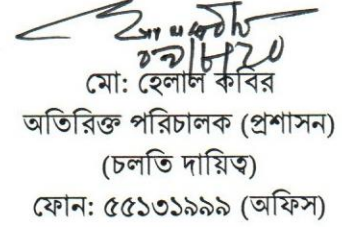 মো: হেলাল কবির
অতিরিক্ত পরিচালক (প্রশাসন)
(চলতি দায়িত্ব)
ফোন: ৫৫১৩১৯৯৯ (অফিস)